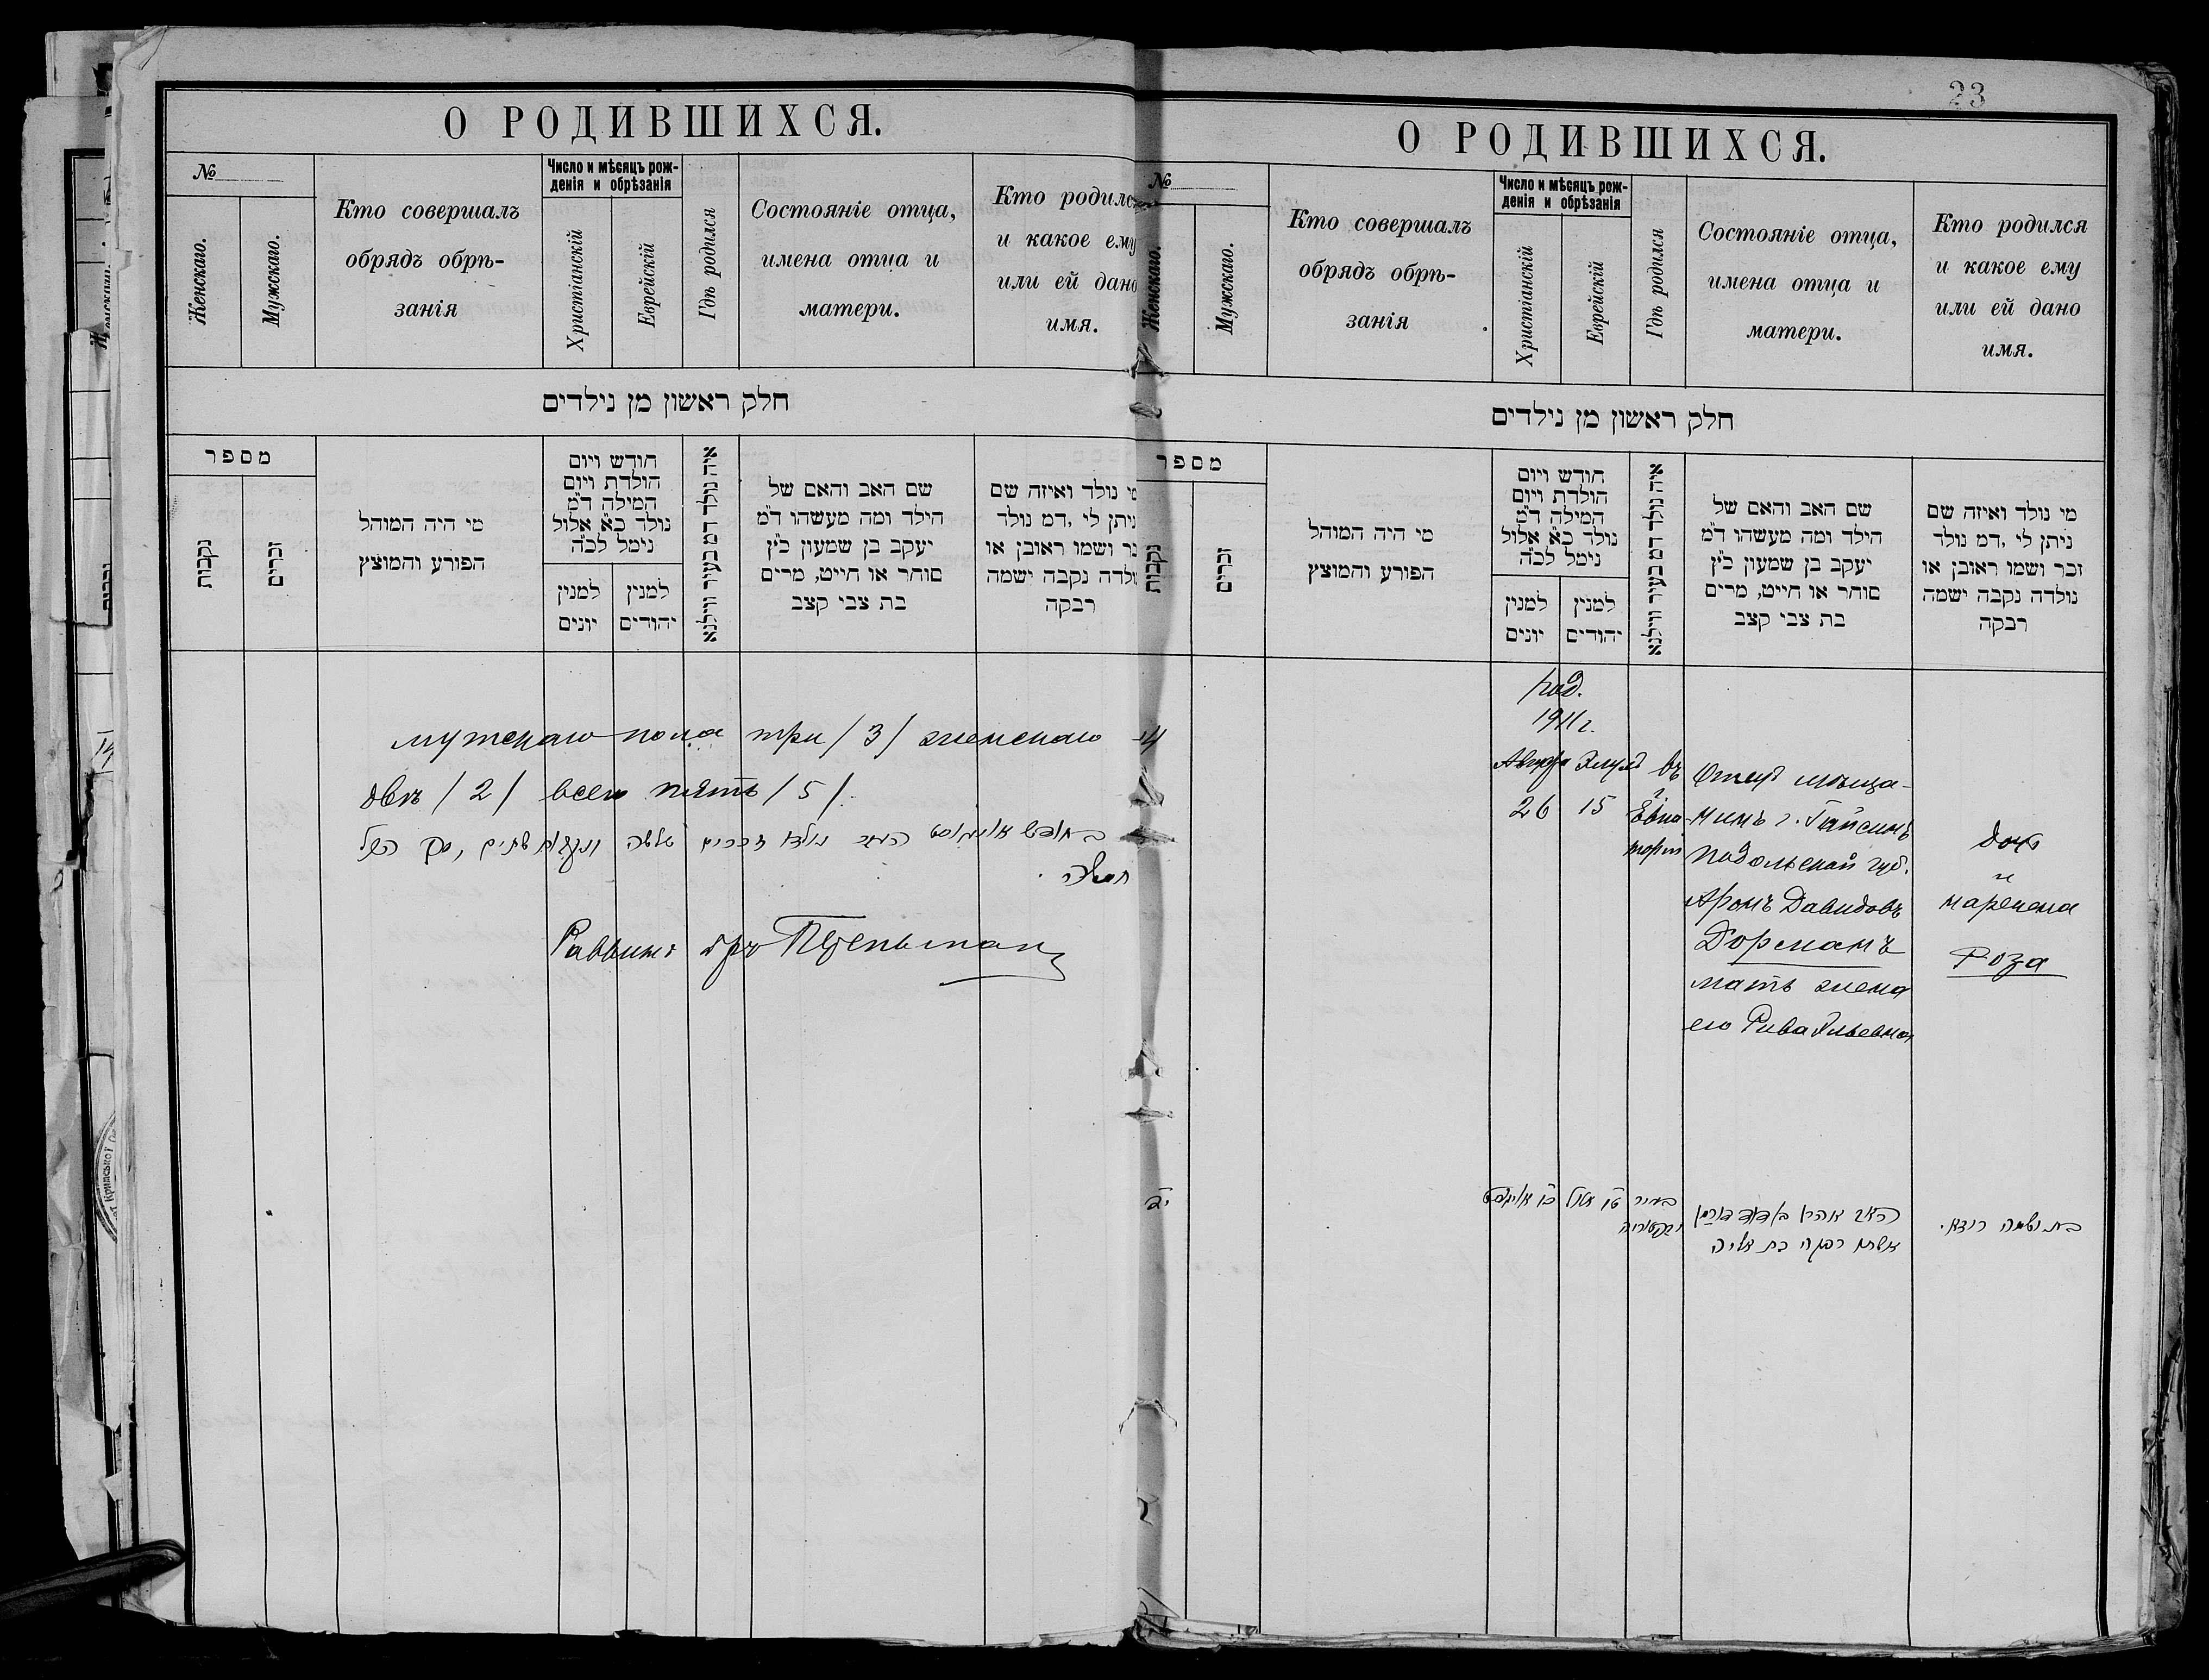 О РОДИВШИХСЯ.
№
Женскаго.
Мужскаго.
Кто совершалъ
обрядъ обрѣ-
занія
Число и мѣсяцъ рож-
денія и обрѣзанія
Христіанскій
Еврейскій
Гдѣ родился
Состояніе отца,
имена отца и
матери.
Кто родился
и какое ему
или ей дано
имя.
חלק ראשון מן נילדים
מספר
נקבות
זכרים
מי היה המוהל
הפורע והמוצץ
חודש ויום
הולדת ויום
המילה ד״מ
נולד כ״א אלול
נימל לכ״ה
למנין
יונים
למנין
יהודים
איה נולד דמ בעיר ווילנא
שם האב והאם של
הילד ומה מעשהו ד״מ
יעקב בן שמעון כ״ץ
סוחר או חייט, מרים
בת צבי קצב
מי נולד ואיזה שם
ניתן לי ,דמ נולד
זכר ושמו ראובן או
נולדה נקבה ישמה
רבקה
мужскаго пола три /3/ женскаго
двѣ /2/ всего пять /5/.
Раввинъ
23
О РОДИВШИХСЯ.
№
Женскаго.
Мужскаго.
Кто совершалъ
обрядъ обрѣ-
занія
Число и мѣсяцъ рож-
денія и обрѣзанія
Христіанскій
Еврейскій
Гдѣ родился
Состояніе отца,
имена отца и
матери.
Кто родился
и какое ему
или ей дано
имя.
חלק ראשון מן נילדים
מספר
נקבות
זכרים
מי היה המוהל
הפורע והמוצץ
חודש ויום
הולדת ויום
המילה ד״מ
נולד כ״א אלול
נימל לכ״ה
למנין
יונים
למנין
יהודים
איה נולד דמ בעיר ווילנא
שם האב והאם של
הילד ומה מעשהו ד״מ
יעקב בן שמעון כ״ץ
סוחר או חייט, מרים
בת צבי קצב
מי נולד ואיזה שם
ניתן לי ,דמ נולד
זכר ושמו ראובן או
נולדה נקבה ישמה
רבקה
14
род.
1911 г.
Августа
26
Элулъ
15
въ
г.
Евпа-
торіи
Отецъ мѣща-
нинъ г. Гайсинъ
Подольской губ.
Аронъ Давидовъ
Дорманъ
мать жена
его Рива Ильевна
дочь
и
наречена
Роза
כ״ו אויגוסט
ט״ו אלול
בעיר
האב אהרן ב״ר דוד דורמן
אשתו רבקה בת אליה
בת ושמה רוזא.